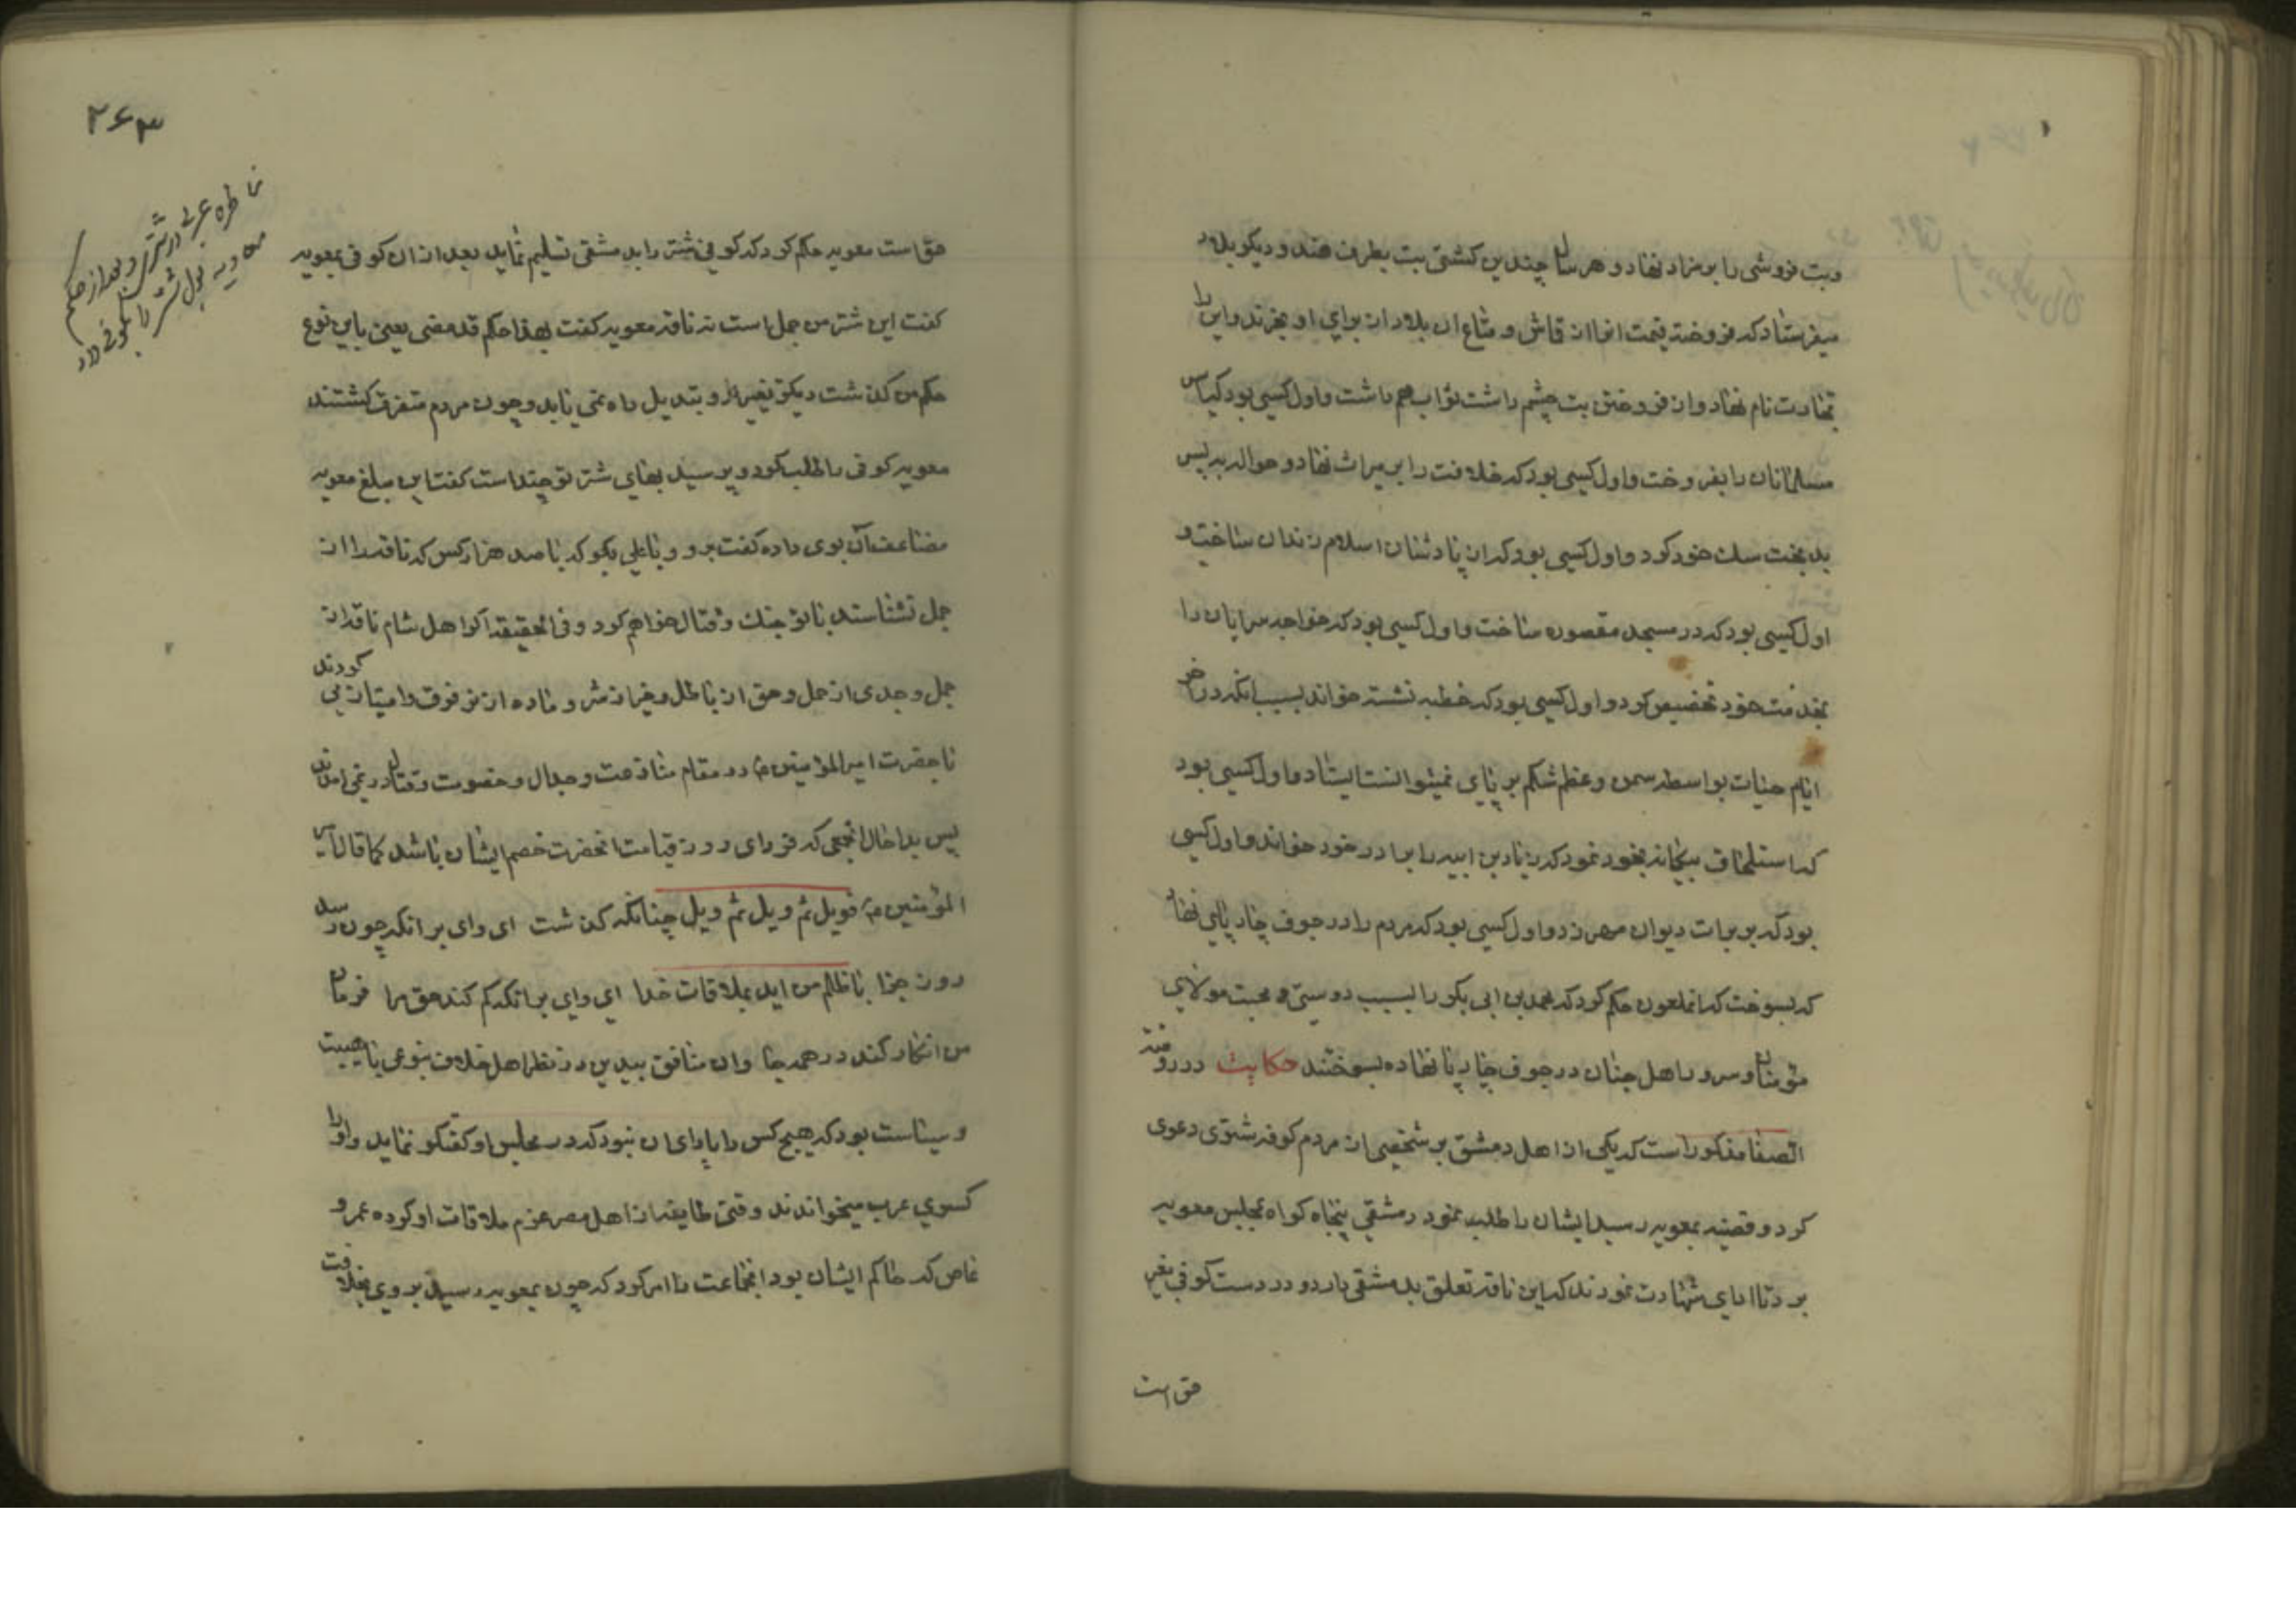 وبت فروشی را بر مزاد نهاد و هر سال چندین کشتی بت بطرف هند و دیگر بلاد
میفرستاد که فروخته قیمت انرا از قماش و متاع ان بلاد از برای او بخرند و این را
تجارت نام نهاد و از فروختن بت چشم داشت ثواب هم داشت و اول کسی بود که
مسلمانان را بفروخت و اول کسی بود که خلافت را بر میراث نهاد و حواله به پسر
بدبخت سک خود کرد و اول کسی بود که از پادشاهان اسلام زندان ساخت و
اول کسی بود که در مسجد مقصوره ساخت و اول کسی بود که خواجه سرایان را
بخدمت خود تخصیص کرد و اول کسی بود که خطبه نشسته خواند بسبب انکه در اخر
ایام حیات بواسطه سمن و عظم شکم بر پای نمیتوانست ایستاد و اول کسی بود
که استلحاق بیکانه بخود نمود که زیاد بن ابیه را برادر خود خواند و اول کسی
بود که بر برات دیوان مهر زد و اول کسی بود که مردم را در جوف چارپای نهاد
که بسوخت که انملعون حکم کرد که محمد بن ابی بکر را بسبب دوستی و محبت مولای
مؤمنان و سرور اهل جنان در جوف چارپا نهاده بسوختند حکایت در روضة
الصفا مذکور است که یکی از اهل دمشق بر شخصی از مردم کوفه شتری دعوی
کرد و قضیه بمعویه رسید ایشان را طلب نمود دمشقی پنجاه کواه بمجلس معویه
برد تا ادای شهادت نمودند که این ناقه تعلق بدمشقی دارد و در دست کوفی بغیر
حق است
۲۶۳
حق است معویه حکم کرد که کوفی شتر را بدمشقی تسلیم نماید بعد از ان کوفی بمعویه
کفت این شتر من جمل است نه ناقه معویه کفت هذا حکم قد مضی یعنی باین نوع
حکم من کذشت دیکر تغییر و تبدیل راه نمی یابد و چون مردم متفرق کشتند
معویه کوفی را طلب کرد و پرسید بهای شتر تو چند است کفت این مبلغ معویه
مضاعف آن بوی داده کفت برو و با علی بکو که با صد هزار کس که ناقه را از
جمل نشناسند با تو جنک و قتال خواهم کرد و فی الحقیقه اکر اهل شام ناقه از
جمل و جدی از حمل و حق از باطل و خیر از شر و ماده از نر فرق و امتیاز می کردند
با حضرت امیر المؤمنین ع در مقام منازعت و جدال و خصومت و قتال در نمی امدند
پس بدا حال جمعی که فردای روز قیامت انحضرت خصم ایشان باشد کما قال امیر
المؤمنین ع فویل ثم ویل ثم ویل چنانکه کذشت ای وای بر انکه چون رسد
روز جزا با ظالم من اید بملاقات خدا ای وای بر انکه کم کند حق مرا فرمان
من انکار کند در همه جا وان منافق بیدین در نظر اهل خلاف بنوعی با هیبت
و سیاست بود که هیچ کس را یارای ان نبود که در مجلس او کفتکو نماید و او را
کسری عرب میخواندند وقتی طایفه از اهل مصر عزم ملاقات او کرده عمرو
عاص که حاکم ایشان بود انجماعت را امر کرد که چون بمعویه رسید بروی بخلافت